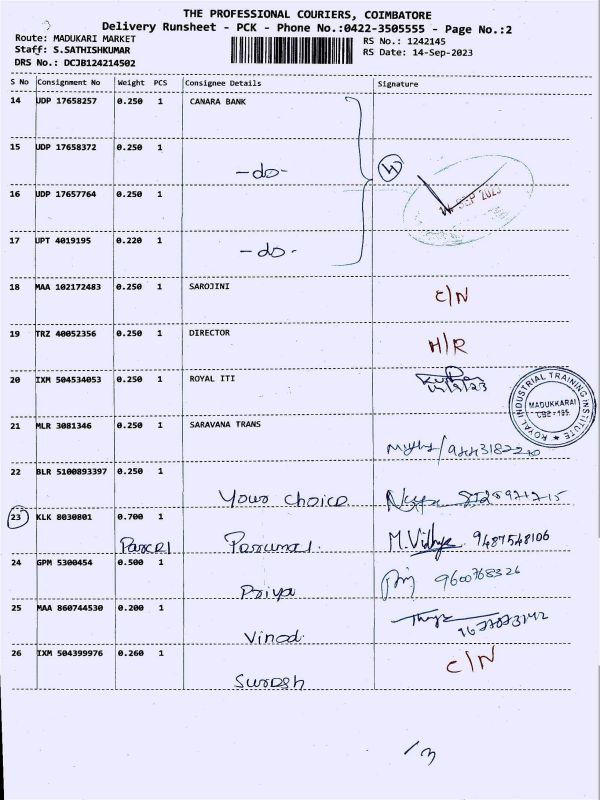 THE PROFESSIONAL COURIERS, COIMBATORE
Delivery Runsheet - PCK - Phone No.:0422-3505555 - Page No.:2
Route: MADUKARI MARKET
RS No.: 1242145
Staff: S.SATHISHKUMAR
RS Date: 14-Sep-2023
DRS No.: DCJB124214502
S No Consignment No Weight PCS Consignee Details Signature
14 UDP 17658257 0.250 1 CANARA BANK
15 UDP 17658372 0.250 1
-do-
16 UDP 17657764 0.250 1
SEP 2023
17 UPT 4019195 0.220 1
-do-
18 MAA 102172483 0.250 1 SAROJINI
C/N
19 TRZ 40052356 0.250 1 DIRECTOR
H/R
20 IXM 504534053 0.250 1 ROYAL ITI
ROYAL INDUSTRIAL TRAINING INSTITUTE
MADUKKARAI
21 MLR 3081346 0.250 1 SARAVANA TRANS
22 BLR 5100893397 0.250 1
Your choice
23 KLK 8030801 0.700 1
Parcel
M.Vidhya 9487548106
24 GPM 5300454 0.500 1
Priya
9600768326
25 MAA 860744530 0.200 1
Vinod
26 IXM 504399976 0.260 1
C/N
Suresh